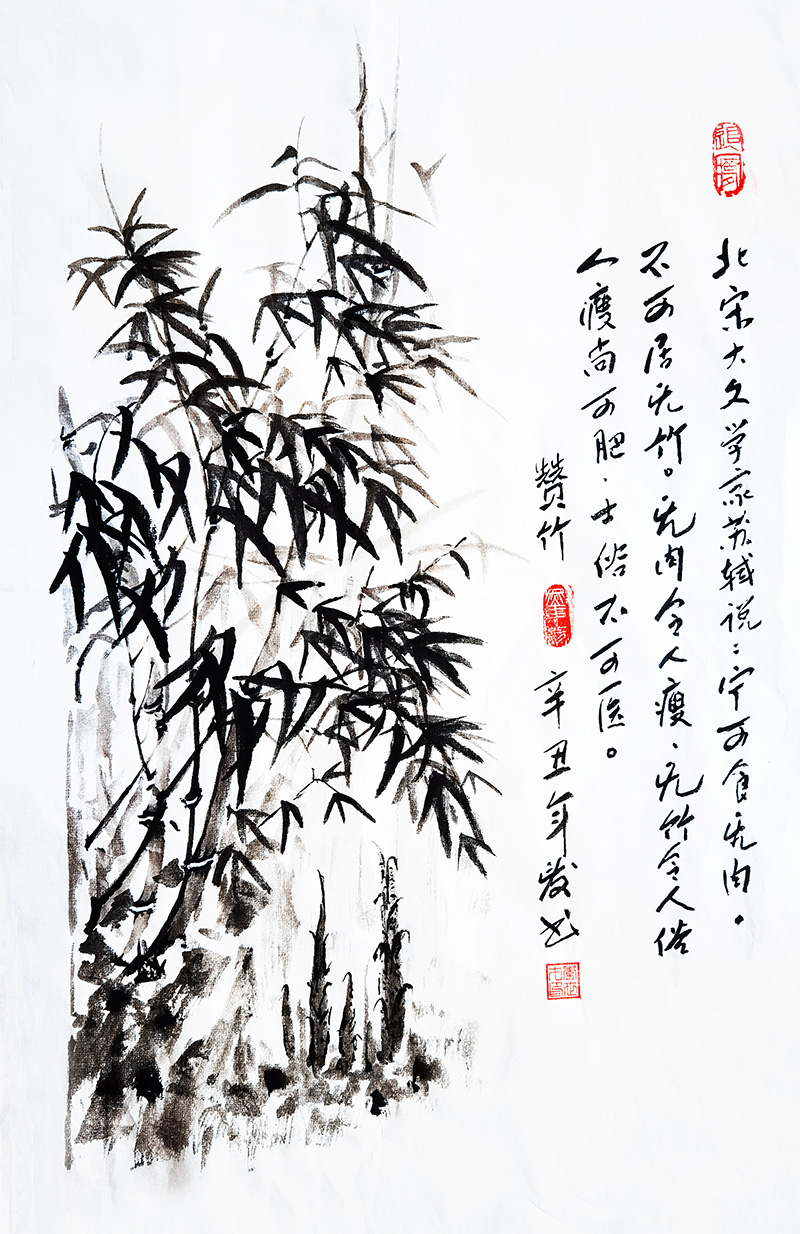 追夢
北宋大文学家苏轼说：宁可食无肉。
不可居无竹。无肉令人瘦、无竹令人俗
人瘦尚可肥．士俗不可医。
赞竹
辛丑年 书